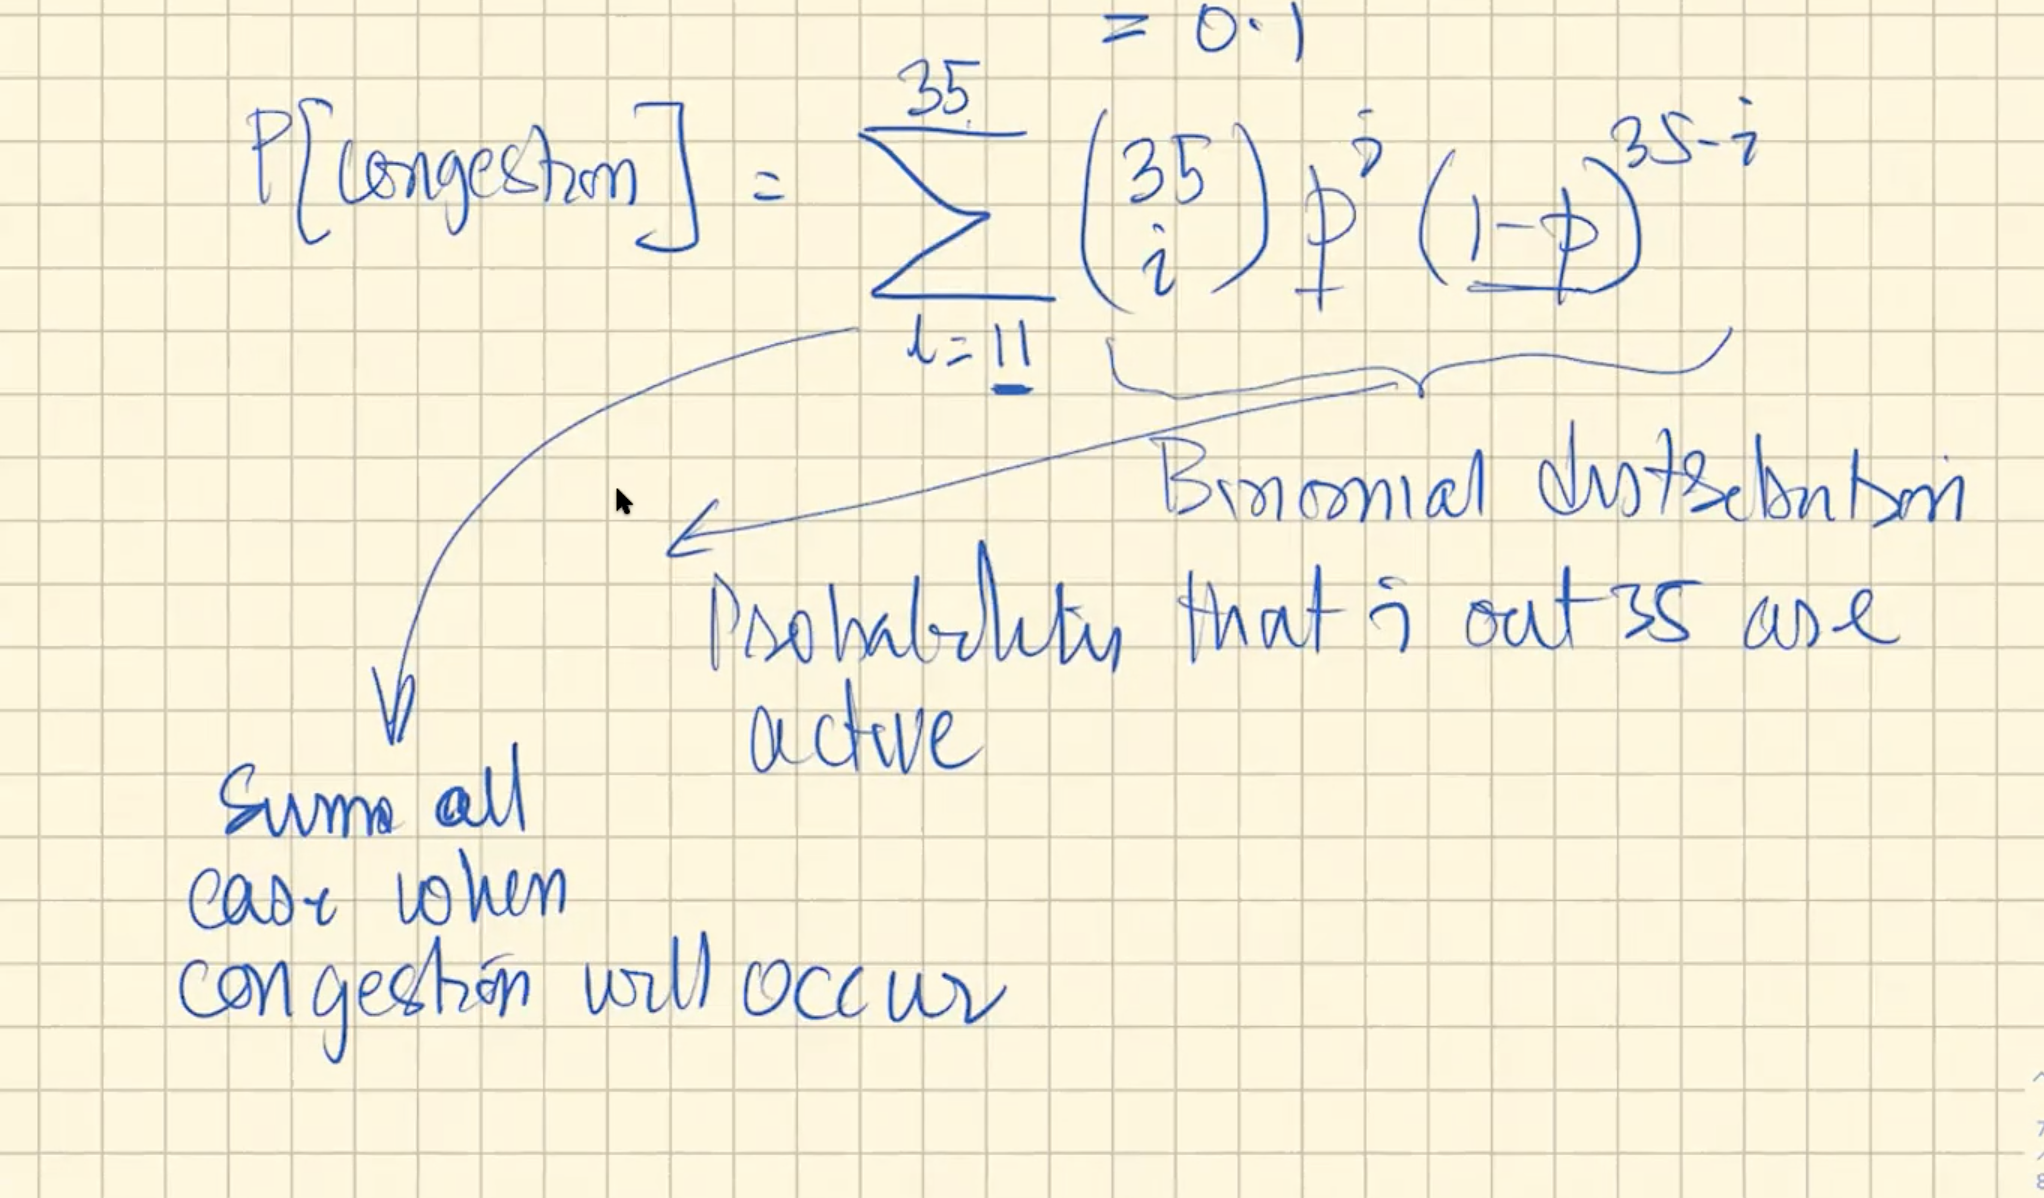 = 0.1
P[congestion] = \sum_{i=11}^{35} \binom{35}{i} p^i (1-p)^{35-i}
Binomial distribution
Probability that i out 35 are
active
Sum all
case when
congestion will occur